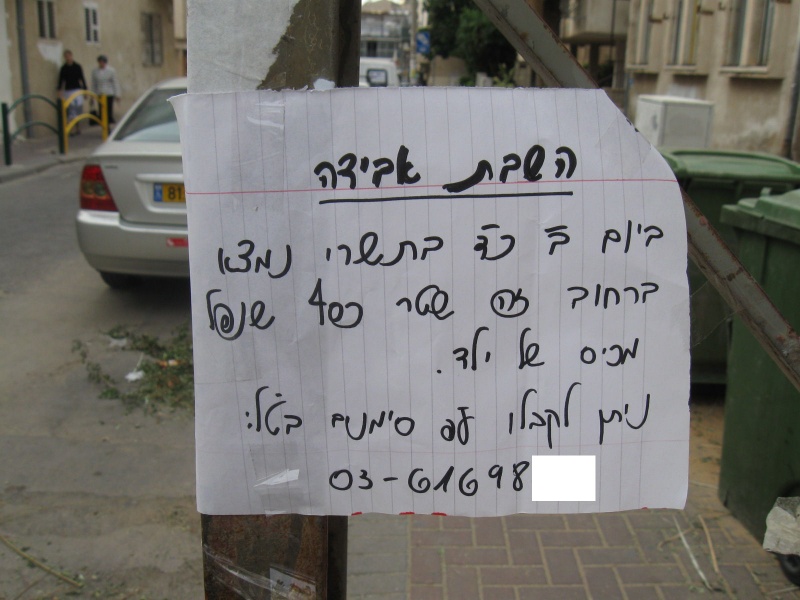 השבת אבידה
ביום ב' כ"ד בתשרי נמצא
ברחוב זה שטר כסף שנפל
מכיס של ילד.
ניתן לקבלו עפ סימנים בטל:
03-61698
81